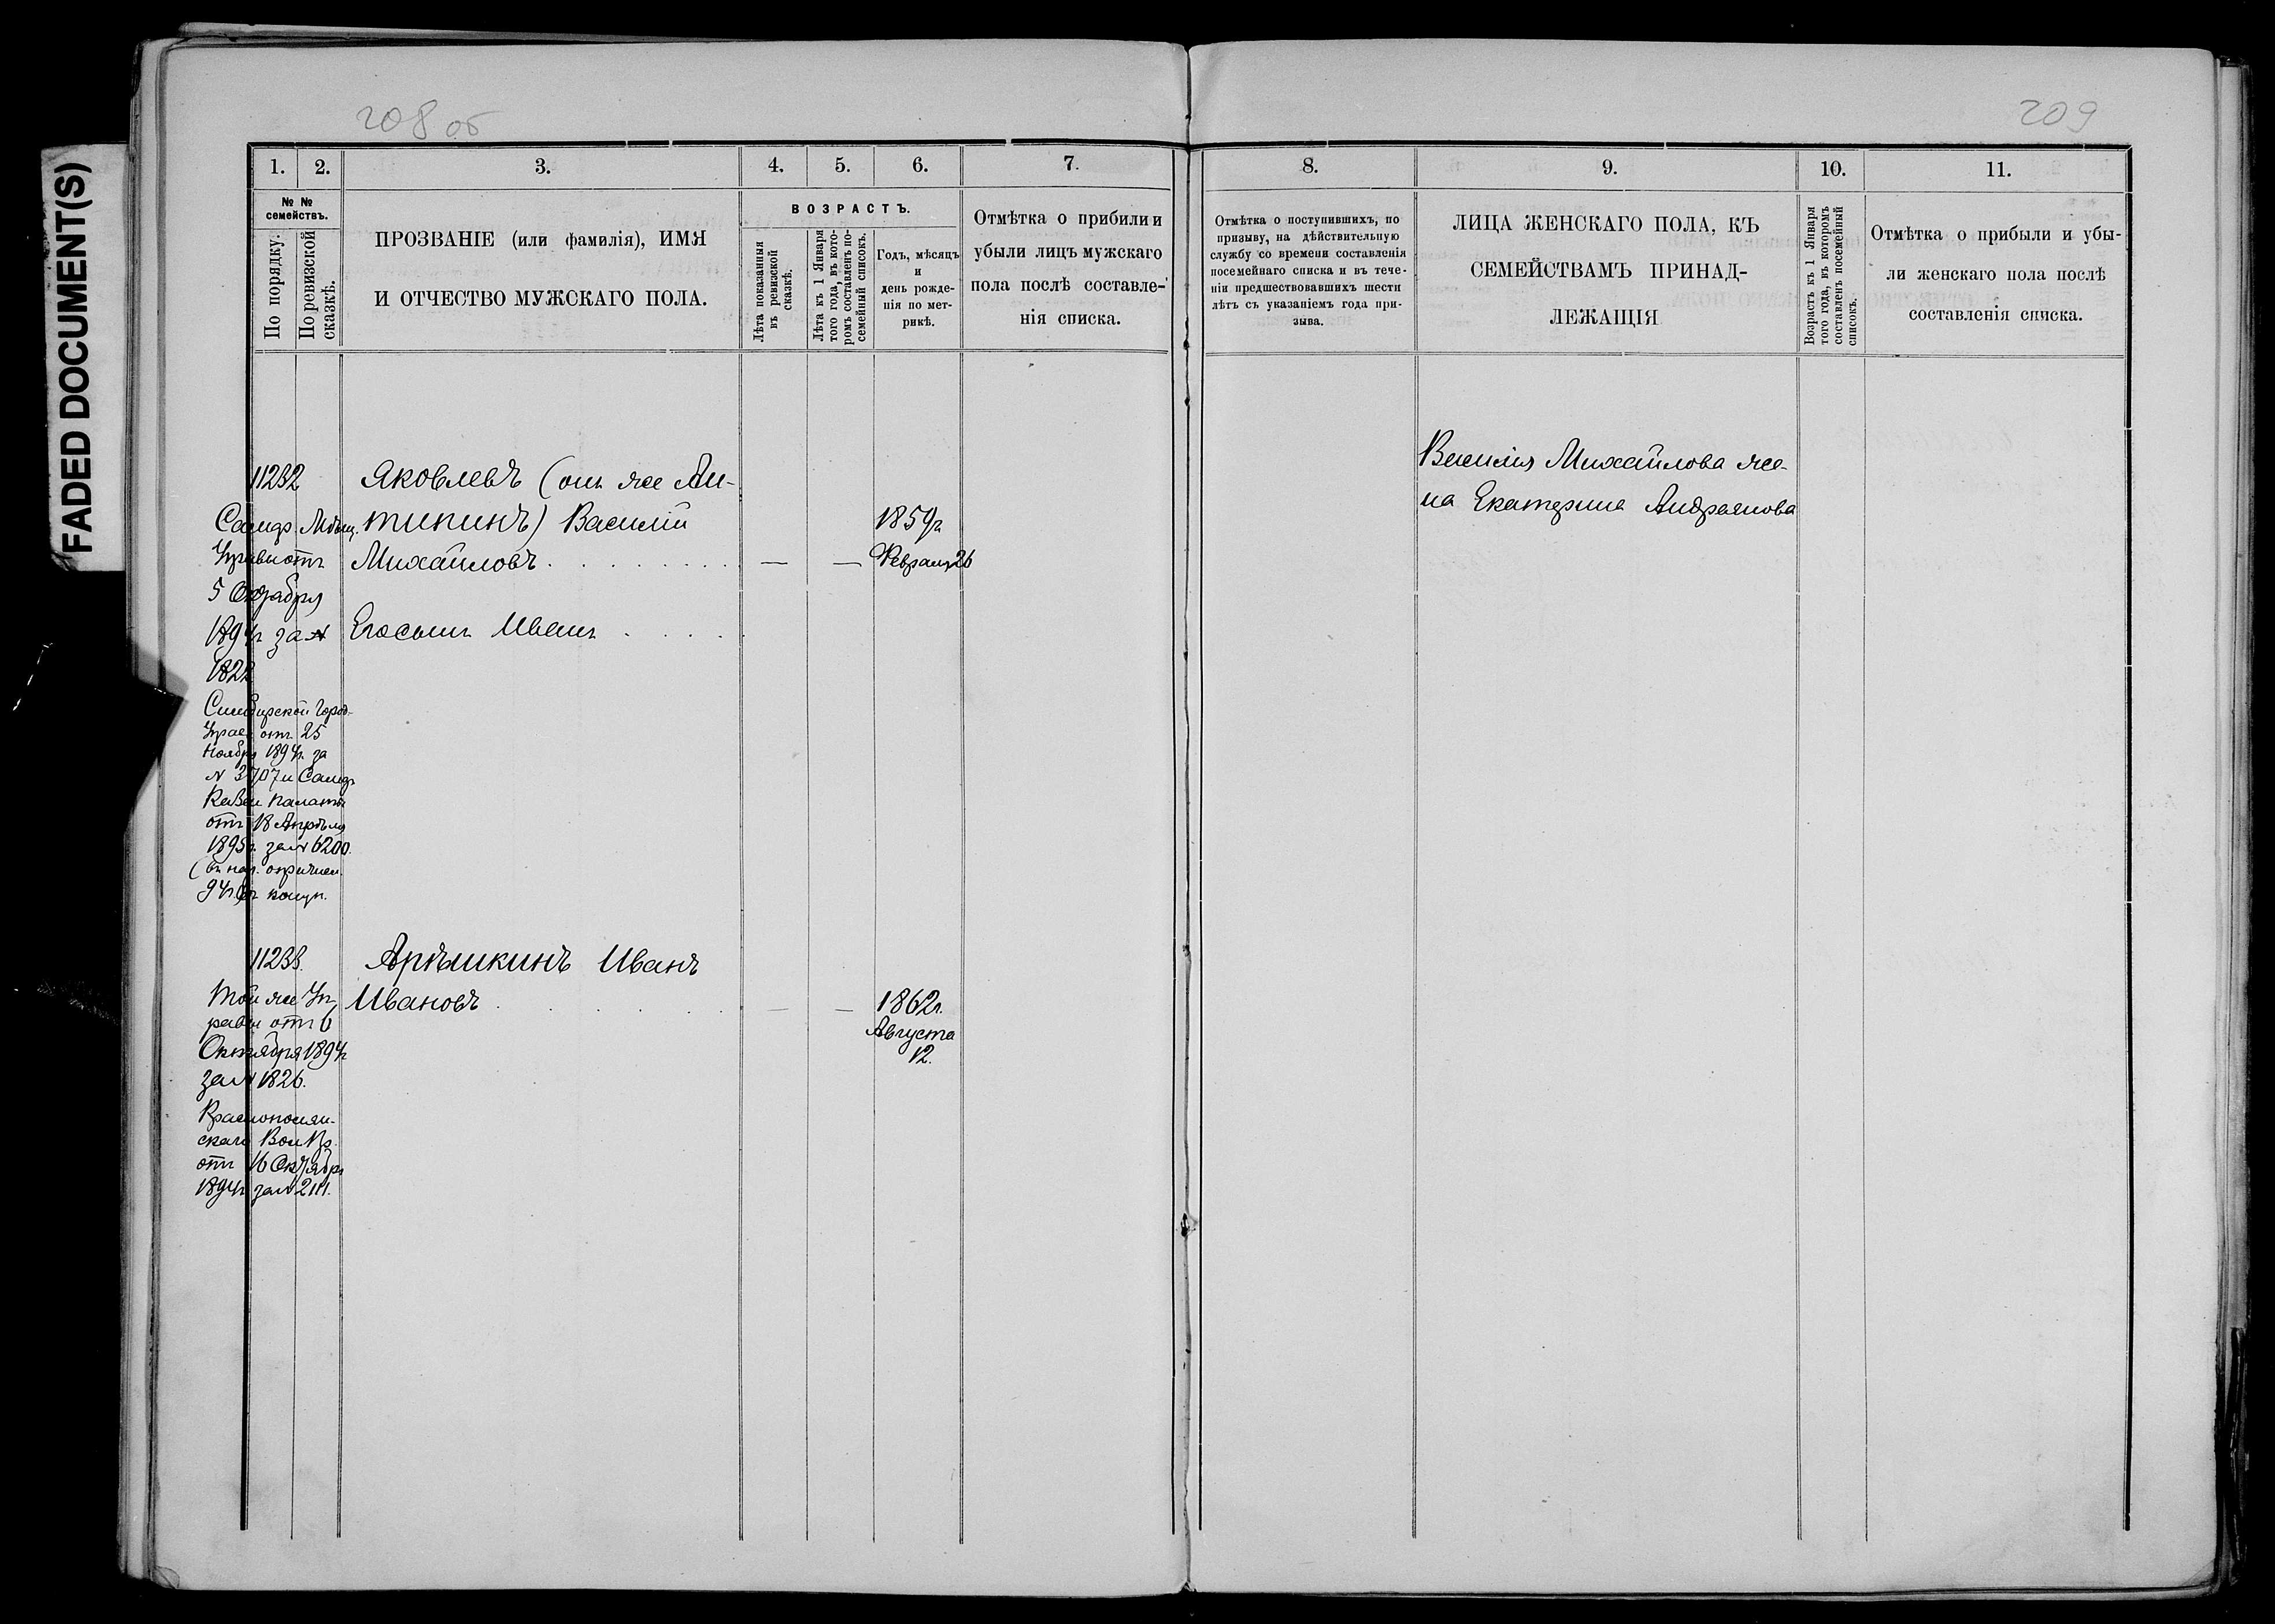 FADED DOCUMENT(S)
208 об
209
1. 2. 3. 4. 5. 6. 7.
№ № семействъ.
По порядку.
По ревизской сказкѣ.
ПРОЗВАНІЕ (или фамилія), ИМЯ
И ОТЧЕСТВО МУЖСКАГО ПОЛА.
ВОЗРАСТЪ.
Лѣта показанныя въ ревизской сказкѣ.
Лѣта къ 1 Января того года, въ которомъ составленъ посемейный списокъ.
Годъ, мѣсяцъ
и
день рожде-
нія по мет-
рикѣ.
Отмѣтка о прибыли и
убыли лицъ мужскаго
пола послѣ составле-
нія списка.
11232
Яковлевъ (онъ же Ан-
Самар. Мѣщ. типинъ) Василій 1859г.
Управы отъ Михайловъ — — Февраля 26
5 Октября
1894г за № Его сынъ Иванъ
1822
Симбирской Город.
Управ. отъ 25
Ноября 1894г. за
№ 3707 и Самар.
Казен. палаты
отъ 18 Апрѣля
1895г. за № 6200.
11233. Арѣшкинъ Иванъ
Той же Уп- Ивановъ — — 1862г.
равы отъ 6 Августа
Октября 1894г 12.
за № 1826.
скаго Вол. Пр.
отъ 16 Октября
1894г за № 2111.
8. 9. 10. 11.
Отмѣтка о поступившихъ, по
призыву, на дѣйствительную
службу со времени составленія
посемейнаго списка и въ тече-
ніи предшествовавшихъ шести
лѣтъ съ указаніемъ года при-
зыва.
ЛИЦА ЖЕНСКАГО ПОЛА, КЪ
СЕМЕЙСТВАМЪ ПРИНАД-
ЛЕЖАЩІЯ
Возрастъ къ 1 Января того года, въ которомъ составленъ посемейный списокъ.
Отмѣтка о прибыли и убы-
ли женскаго пола послѣ
составленія списка.
Василія Михайлова же-
на Екатерина Андреянова